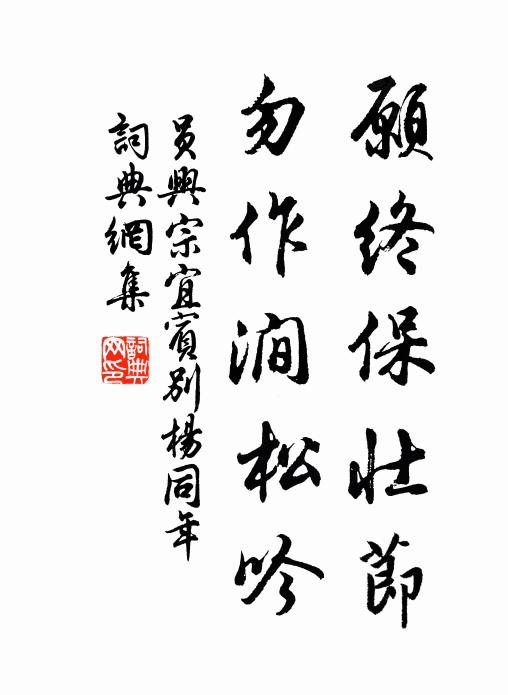 願終保壯節
勿作澗松吟
員興宗宜賓別楊同年
詞典網集
詞典網印